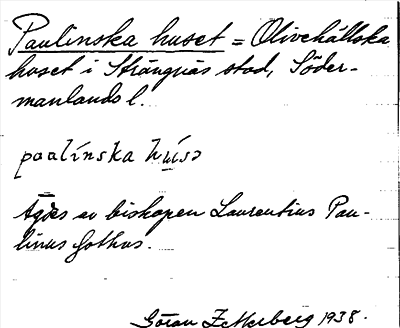 Paulinska huset = Olivehällska
huset i Strängnäs stad, Söder-
manlands l.
paalínska húsə
Ägdes av biskopen Laurentius Pau-
linus Gothus.
Göran Zetterberg 1938.